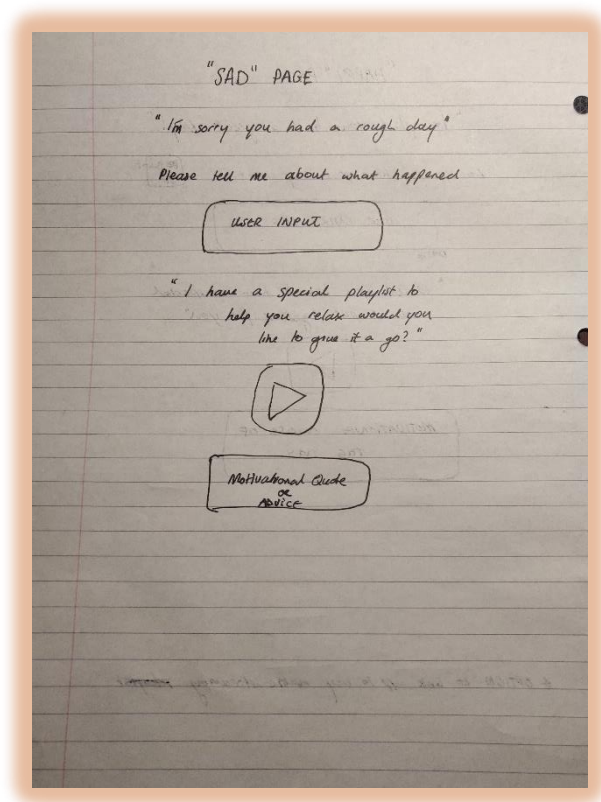 "SAD" PAGE
"I'm sorry you had a rough day"
Please tell me about what happened
USER INPUT
"I have a special playlist to
help you relax would you
like to give it a go?"
Motivational Quote
or
ADVICE